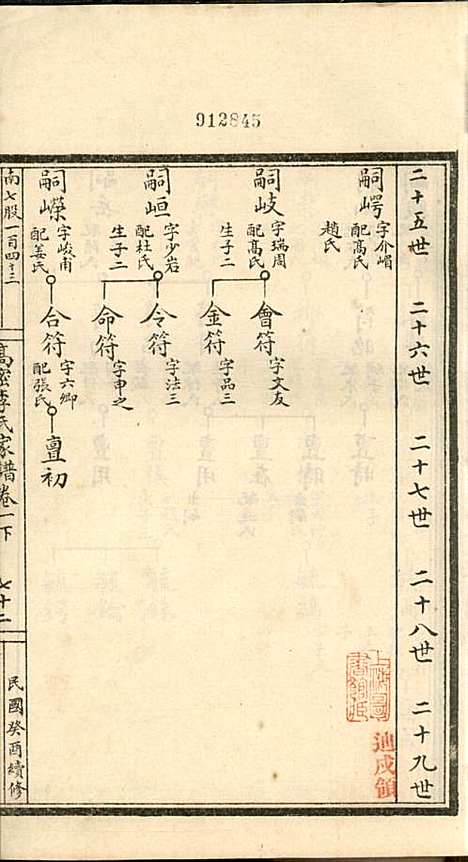 912845
二十五世 二十六世 二十七世 二十八世 二十九世
嗣崿 字介嵋 配髙氏 趙氏
嗣岐 字瑞周 配髙氏 生子二
會符 字文友
金符 字品三
嗣峘 字少岩 配杜氏 生子二
令符 字法三
命符 字申之
嗣嶸 字峻甫 配姜氏
合符 字六卿 配張氏
亶初
南七股一百四十三
髙密李氏家譜卷一下
七十二
民國癸酉續修